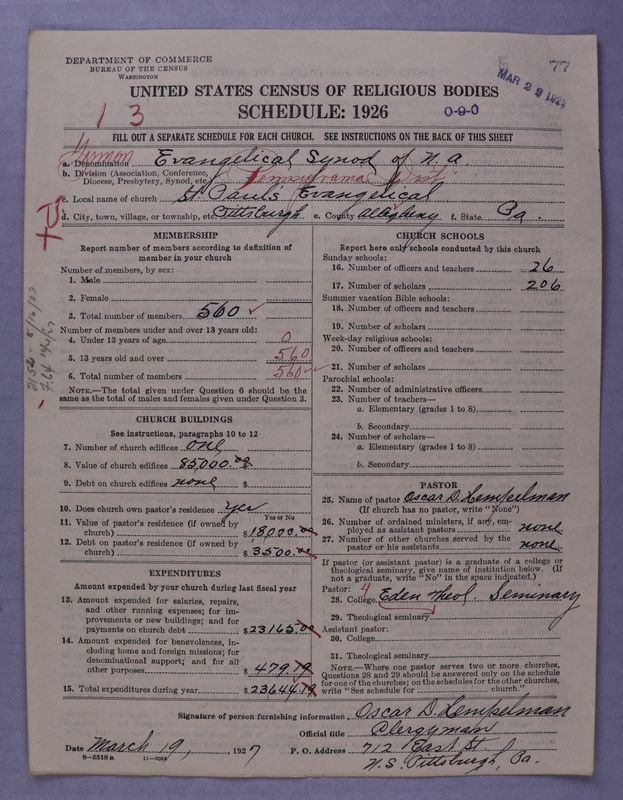 DEPARTMENT OF COMMERCE
BUREAU OF THE CENSUS
WASHINGTON
77
MAR 29 192
UNITED STATES CENSUS OF RELIGIOUS BODIES
SCHEDULE: 1926
1 3
0-9-0
FILL OUT A SEPARATE SCHEDULE FOR EACH CHURCH. SEE INSTRUCTIONS ON THE BACK OF THIS SHEET
German
a. Denomination Evangelical Synod of N. a.
b. Division (Association, Conference, Diocese, Presbytery, Synod, etc.) Pennsylvania Dist.
c. Local name of church St. Paul's Evangelical
d. City, town, village, or township, etc. Pittsburgh e. County Allegheny. f. State Pa.
MEMBERSHIP
Report number of members according to definition of
member in your church
Number of members, by sex:
1. Male
2. Female
3. Total number of members 560
Number of members under and over 13 years old:
4. Under 13 years of age 0
5. 13 years old and over 560
6. Total number of members 560
NOTE.—The total given under Question 6 should be the
same as the total of males and females given under Question 3.
CHURCH BUILDINGS
See instructions, paragraphs 10 to 12
7. Number of church edifices one
8. Value of church edifices 85000.00
9. Debt on church edifices none $
10. Does church own pastor's residence yes
Yes or No
11. Value of pastor's residence (if owned by
church) $18000.00
12. Debt on pastor's residence (if owned by
church) $3500.00
EXPENDITURES
Amount expended by your church during last fiscal year
13. Amount expended for salaries, repairs,
and other running expenses; for im-
provements or new buildings; and for
payments on church debt $23165.00
14. Amount expended for benevolences, in-
cluding home and foreign missions; for
denominational support; and for all
other purposes $479.19
15. Total expenditures during year $23644.19
CHURCH SCHOOLS
Report here only schools conducted by this church
Sunday schools:
16. Number of officers and teachers 26
17. Number of scholars 206
Summer vacation Bible schools:
18. Number of officers and teachers
19. Number of scholars
Week-day religious schools:
20. Number of officers and teachers
21. Number of scholars
Parochial schools:
22. Number of administrative officers
23. Number of teachers—
a. Elementary (grades 1 to 8)
b. Secondary
24. Number of scholars—
a. Elementary (grades 1 to 8)
b. Secondary
PASTOR
25. Name of pastor Oscar D. Hempelman
(If church has no pastor, write "None")
26. Number of ordained ministers, if any, em-
ployed as assistant pastors none
27. Number of other churches served by the
pastor or his assistants none
If pastor (or assistant pastor) is a graduate of a college or
theological seminary, give name of institution below. (If
not a graduate, write "No" in the space indicated.)
Pastor: 4
28. College Eden Theol. Seminary
29. Theological seminary
Assistant pastor:
30. College
31. Theological seminary
NOTE.—Where one pastor serves two or more churches,
Questions 28 and 29 should be answered only on the schedule
for one of the churches; on the schedules for the other churches,
write "See schedule for church."
Signature of person furnishing information Oscar D. Hempelman
Official title Clergyman
Date March 19, 1927 P. O. Address 712 East St.
N.S. Pittsburgh, Pa.
8—5518 a 11—9054